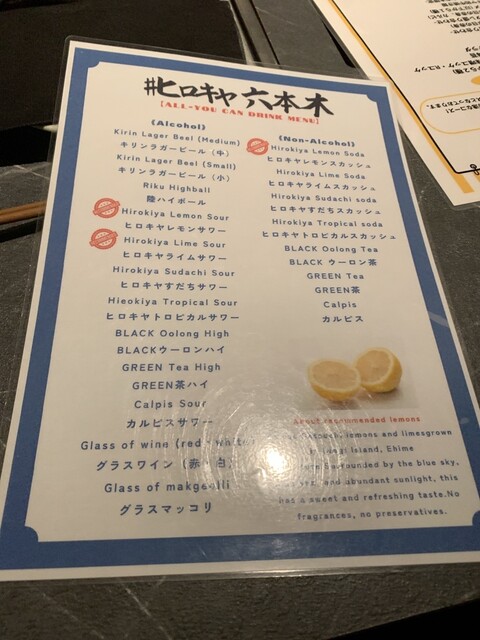 #ヒロキヤ 六本木
[ALL-YOU CAN DRINK MENU]
《Alcohol》
Kirin Lager Beel (Medium)
キリンラガービール（中）
Kirin Lager Beel (Small)
キリンラガービール（小）
Riku Highball
陸ハイボール
Hirokiya Lemon Sour
ヒロキヤレモンサワー
Hirokiya Lime Sour
ヒロキヤライムサワー
Hirokiya Sudachi Sour
ヒロキヤすだちサワー
Hieokiya Tropical Sour
ヒロキヤトロピカルサワー
BLACK Oolong High
BLACKウーロンハイ
GREEN Tea High
GREEN茶ハイ
Calpis Sour
カルピスサワー
Glass of wine (red・white
グラスワイン（赤・白）
Glass of makgeolli
グラスマッコリ
《Non-Alcohol》
Hirokiya Lemon Soda
ヒロキヤレモンスカッシュ
Hirokiya Lime Soda
ヒロキヤライムスカッシュ
Hirokiya Sudachi soda
ヒロキヤすだちスカッシュ
Hirokiya Tropical soda
ヒロキヤトロピカルスカッシュ
BLACK Oolong Tea
BLACK ウーロン茶
GREEN Tea
GREEN茶
Calpis
カルピス
About recommended lemons
lemons and limesgrown
Island, Ehime
surrounded by the blue sky,
and abundant sunlight, this
has a sweet and refreshing taste.No
fragrances, no preservatives.